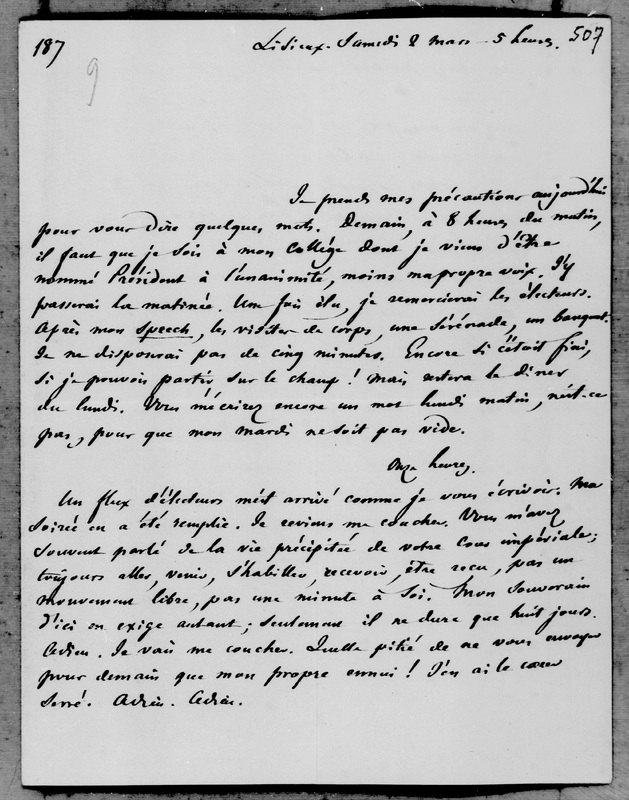 187
9
Lisieux. Samedi 2 mars - 5 heures. 507
Je prends mes précautions aujourd'hui
pour vous dire quelques mots. Demain, à 8 heures du matin,
il faut que je sois à mon Collège dont je viens d'être
nommé Président à l'unanimité, moins ma propre voix. J'y
passerai la matinée. Une fois élu, je remercierai les électeurs.
Après mon speech, les visites de corps, une sérénade, un banquet.
Je ne disposerai pas de cinq minutes. Encore si c'était fini,
si je pouvois partir sur le champ! Mais restera le diner
du lundi. Vous m'écrirez encore un mot lundi matin, n'est-ce
pas, pour que mon mardi ne soit pas vide.
Onze heures.
Un flux d'électeurs m'est arrivé comme je vous écrivois. Ma
soirée en a été remplie. Je reviens me coucher. Vous m'avez
souvent parlé de la vie précipitée de votre Cour impériale;
toujours aller, venir, s'habiller, recevoir, être reçu, pas un
mouvement libre, pas une minute à soi. Mon souverain
d'ici en exige autant; seulement il ne dure que huit jours.
Adieu. Je vais me coucher. Quelle pitié de ne vous envoyer
pour demain que mon propre ennui! J'en ai le cœur
serré. Adieu. Adieu.